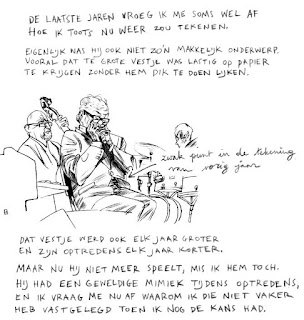 DE LAATSTE JAREN VROEG IK ME SOMS WEL AF
HOE IK TOOTS NU WEER ZOU TEKENEN.
EIGENLIJK WAS HIJ OOK NIET ZO'N MAKKELIJK ONDERWERP.
VOORAL DAT TE GROTE VESTJE WAS LASTIG OP PAPIER
TE KRIJGEN ZONDER HEM DIK TE DOEN LIJKEN.
zwak punt in de tekening
van vorig jaar
DAT VESTJE WERD OOK ELK JAAR GROTER
EN ZIJN OPTREDENS ELK JAAR KORTER.
MAAR NU HIJ NIET MEER SPEELT, MIS IK HEM TOCH.
HIJ HAD EEN GEWELDIGE MIMIEK TIJDENS OPTREDENS,
EN IK VRAAG ME NU AF WAAROM IK DIE NIET VAKER
HEB VASTGELEGD TOEN IK NOG DE KANS HAD.